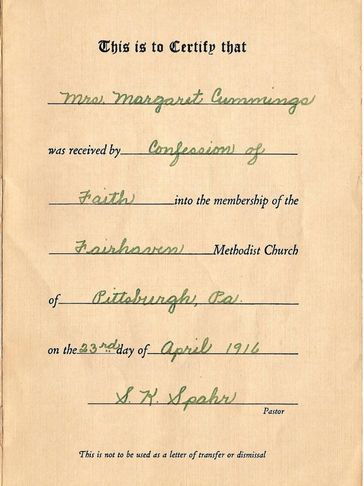 This is to Certify that
Mrs. Margaret Cummings
was received by Confession of
Faith into the membership of the
Fairhaven Methodist Church
of Pittsburgh, Pa.
on the 23rd day of April 1916
S. K. Spahr
Pastor
This is not to be used as a letter of transfer or dismissal